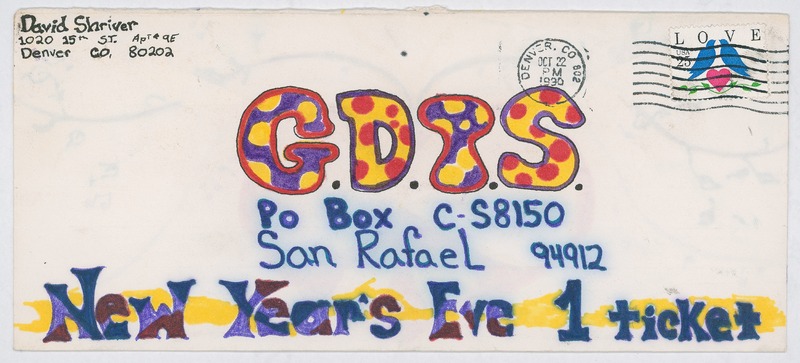 David Shriver
1020 15th ST. Apt # 9E
Denver CO. 80202
DENVER, CO 802
OCT 22
PM
1990
LOVE
USA
25
G.D.T.S.
Po Box C-S8150
San Rafael 94912
New Year's Eve 1 ticket